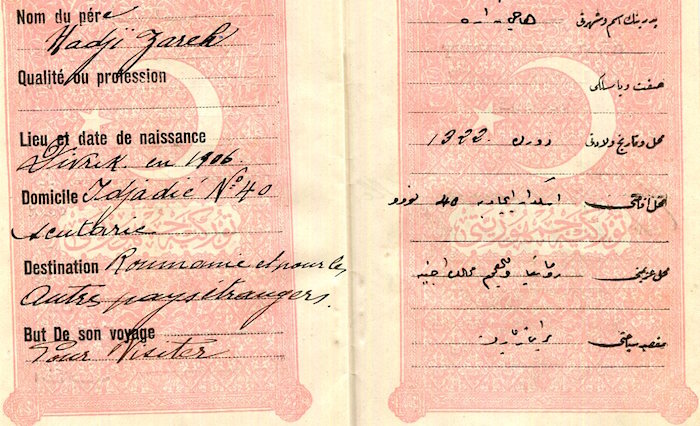 Nom du père
Hadji Zareh
Qualité ou profession
Lieu et date de naissance
Divrik en 1906
Domicile Idjadié No 40
scutarie
Destination Roumanie et pour les
Autre pays étrangers.
But De son voyage
Pour Visiter
پدرینك اسم و شهرتی
صفت ویا مسلكی
محل و تاریخ ولادتی ۱۳۲۲
محل اقامتی اسكدار ایجادیه ٤٠ نومرو
محل عزیمتی رومانیا
مقصد سیاحتی
توركیه جمهوریتی